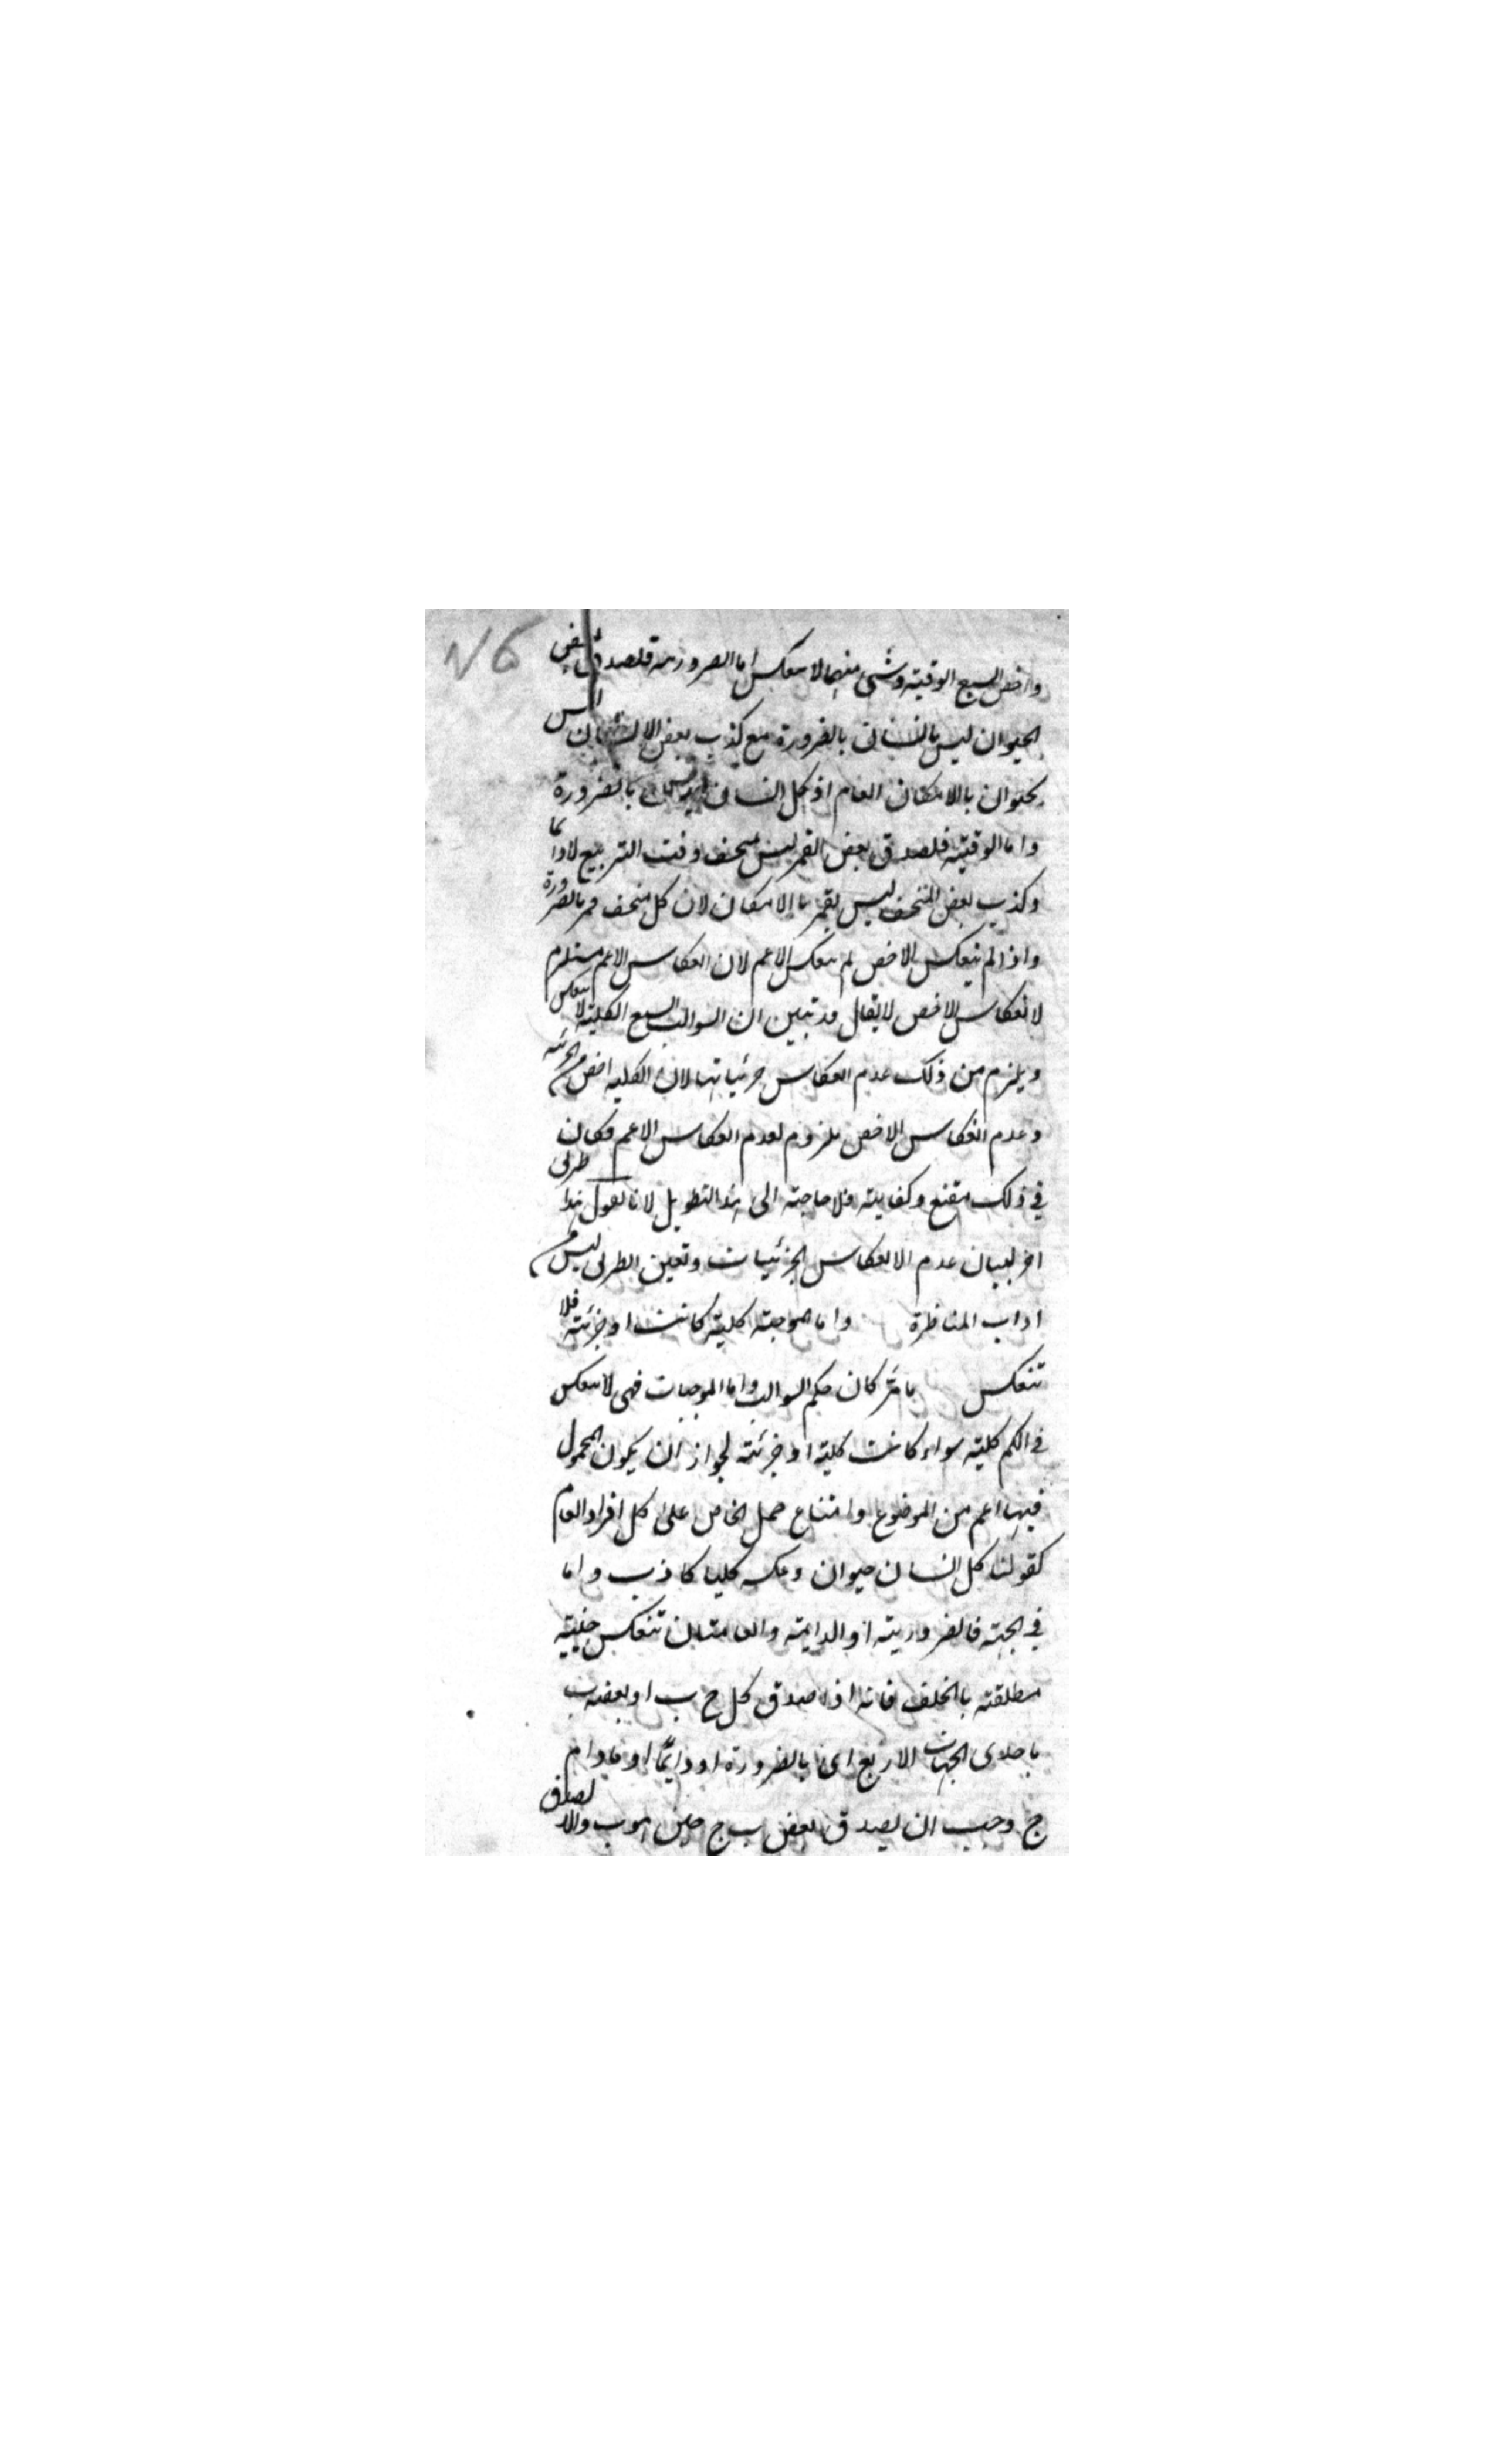 واخص السبع الوقتية وشئ منهما لا ينعكس اما الضرورية فلصدق بعض
الحيوان ليس بانسان بالضرورة مع كذب بعض الانسان ليس
بحيوان بالامكان العام اذ كل انسان بالضرورة
واما الوقتية فلصدق بعض القمر ليس بمنخسف وقت التربيع لا دائما
وكذب بعض المنخسف ليس بقمر بالامكان لان كل منخسف قمر بالضرورة
واذا لم ينعكس الاخص لم ينعكس الاعم لان انعكاس الاعم مستلزم
لانعكاس الاخص لا يقال قد تبين ان السوالب السبع الكلية لا ينعكس
ويلزم من ذلك عدم انعكاس جزئياتها لان الكلية اخص من الجزئية
وعدم انعكاس الاخص ملزوم لعدم انعكاس الاعم فكان
في ذلك مقنع وكفاية فلا حاجة الى هذا التطويل لانا نقول هذا طريق
اخر لبيان عدم الانعكاس الجزئيات وتعين الطريق ليس من
اداب المناظرة واما موجبة كلية كانت او جزئية فلا
تنعكس ما مر كان حكم السوالب واما الموجبات فهي لا ينعكس
في الكم كلية سواء كانت كلية او جزئية لجواز ان يكون المحمول
فيها اعم من الموضوع وامتناع حمل الخاص على كل افراد العام
كقولنا كل انسان حيوان وعكسه كليا كاذب واما
في الجهة فالضرورية او الدايمة والعامتان تنعكس حينية
مطلقة بالخلف فانه اذا صدق كل ج ب او بعضه ب
باحدى الجهات الاربع اى بالضرورة او دايما او مادام
ج وجب ان يصدق بعض ب ج حين هو ب والا لصدق